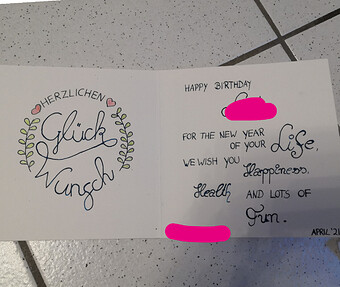 HERZLICHEN
Glück
Wunsch
HAPPY BIRTHDAY
FOR THE NEW YEAR
OF YOUR Life,
WE WISH YOU Happiness,
Health AND LOTS OF
Fun.
APRIL '21